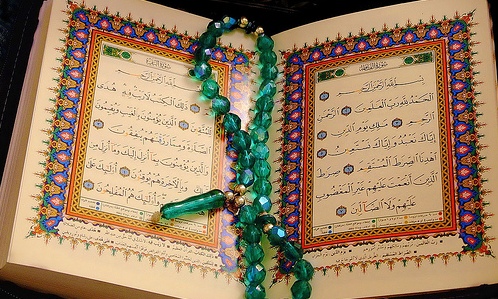 سُورَةُ الفَاتِحَةِ
بِسْمِ ٱللَّهِ ٱلرَّحْمَٰنِ ٱلرَّحِيمِ
ٱلْحَمْدُ لِلَّهِ رَبِّ ٱلْعَٰلَمِينَ ٱلرَّحْمَٰنِ
ٱلرَّحِيمِ مَٰلِكِ يَوْمِ ٱلدِّينِ
إِيَّاكَ نَعْبُدُ وَإِيَّاكَ نَسْتَعِينُ
ٱهْدِنَا ٱلصِّرَٰطَ ٱلْمُسْتَقِيمَ صِرَٰطَ
ٱلَّذِينَ أَنْعَمْتَ عَلَيْهِمْ غَيْرِ ٱلْمَغْضُوبِ
عَلَيْهِمْ وَلَا ٱلضَّآلِّينَ
سُورَةُ البَقَرَةِ
بِسْمِ ٱللَّهِ ٱلرَّحْمَٰنِ ٱلرَّحِيمِ
ذَٰلِكَ ٱلْكِتَٰبُ لَا رَيْبَ فِيهِ هُدًى
لِّلْمُتَّقِينَ ٱلَّذِينَ يُؤْمِنُونَ بِٱلْغَيْبِ وَيُقِيمُونَ
ٱلصَّلَوٰةَ وَمِمَّا رَزَقْنَٰهُمْ يُنفِقُونَ
وَٱلَّذِينَ يُؤْمِنُونَ بِمَآ أُنزِلَ إِلَيْكَ وَمَآ أُنزِلَ مِن
وَبِٱلْءَاخِرَةِ هُمْ يُوقِنُونَ أُو۟لَٰٓئِكَ عَلَىٰ
وَأُو۟لَٰٓئِكَ هُمُ ٱلْمُفْلِحُونَ